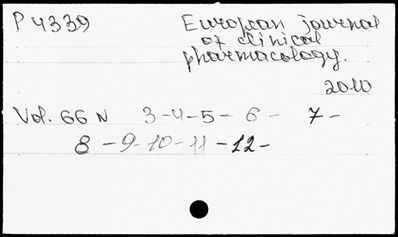 P 4339 European journal
of clinical
pharmacology.
2010
Vol. 66 N 3-4-5- 6- 7-
8-9-10-11-12-